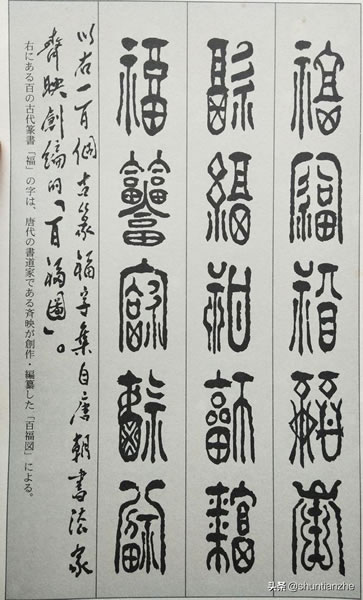 福福福福福
福福福福福
福福福福福
以右一百個古篆福字集自唐朝書法家
齊映創編的「百福圖」。
右にある百の古代篆書「福」の字は、唐代の書道家である斉映が創作・編纂した「百福図」による。
头条 @shuntianzhe